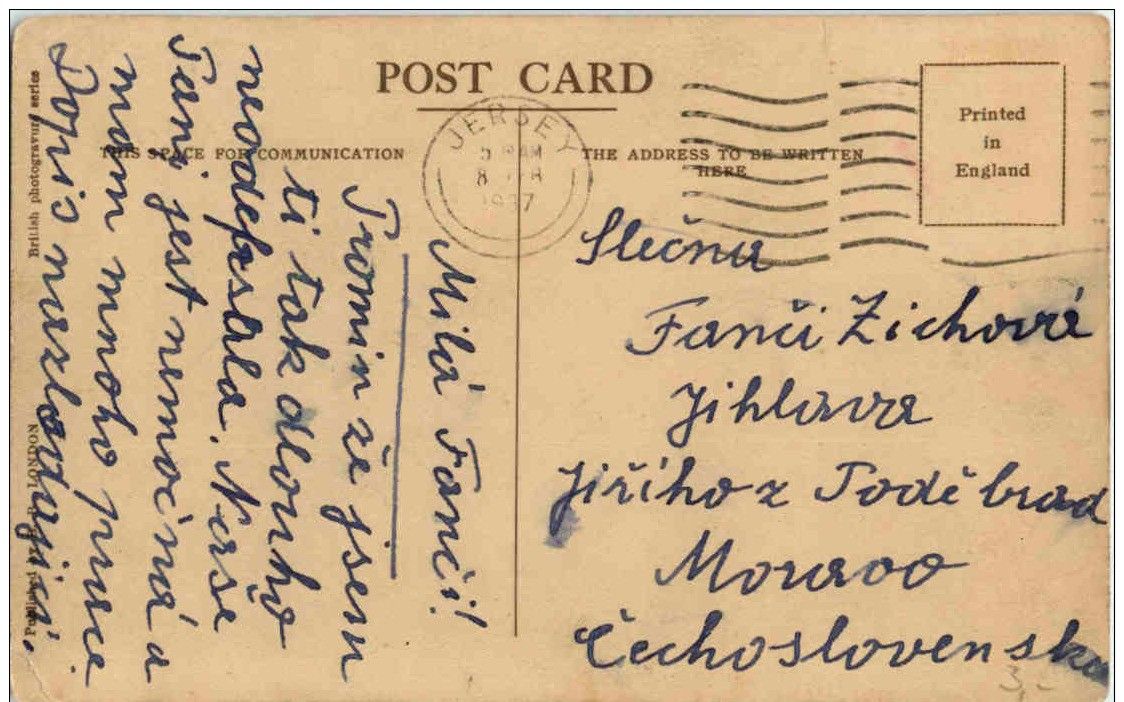 POST CARD
THIS SPACE FOR COMMUNICATION
THE ADDRESS TO BE WRITTEN
HERE
Printed
in
England
JERSEY
1937
British photogravure series
LONDON
Milá Fanči!
Promin že jsem
ti tak dlouho
neodepsala. Naše
Pani jest nemocná a
mam mnoho prace.
Dopis
Slečna
Fanči Zichová
Jihlava
Jiřího z Poděbrad
Moravo
Čechoslovensko
3,-